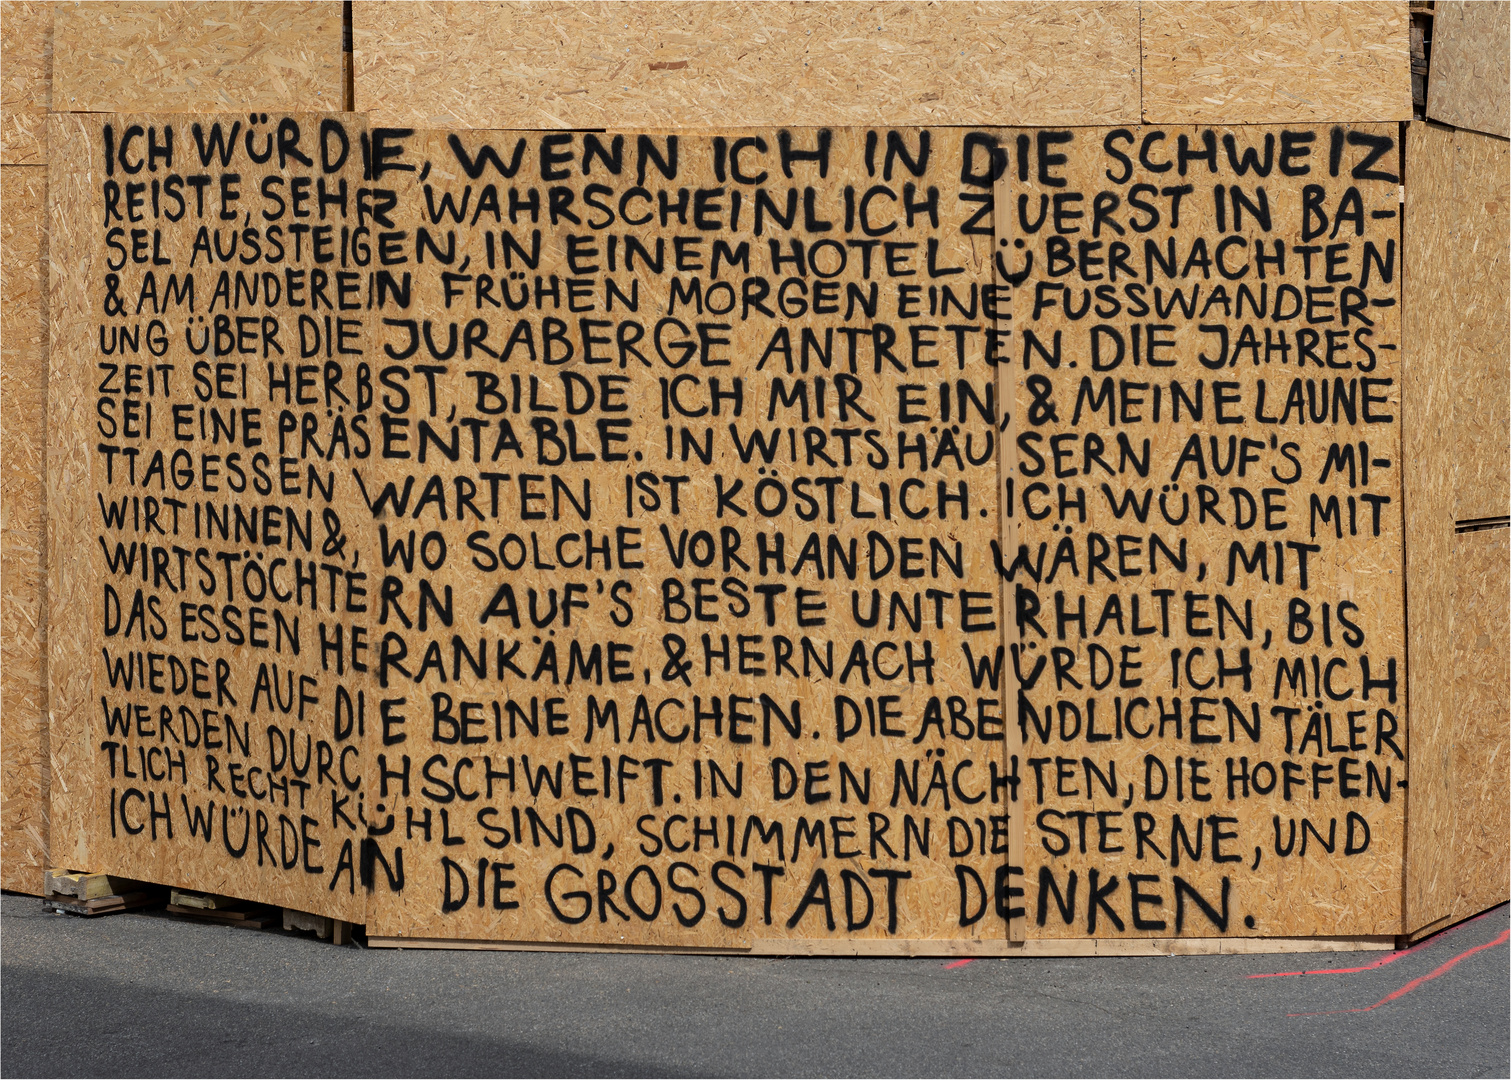 ICH WÜRDE, WENN ICH IN DIE SCHWEIZ
REISTE, SEHR WAHRSCHEINLICH ZUERST IN BA-
SEL AUSSTEIGEN, IN EINEM HOTEL ÜBERNACHTEN
& AM ANDEREIN FRÜHEN MORGEN EINE FUSSWANDER-
UNG ÜBER DIE JURABERGE ANTRETEN. DIE JAHRES-
ZEIT SEI HERBST, BILDE ICH MIR EIN, & MEINE LAUNE
SEI EINE PRÄSENTABLE. IN WIRTSHÄUSERN AUF'S MI-
TTAGESSEN WARTEN IST KÖSTLICH. ICH WÜRDE MIT
WIRTINNEN &, WO SOLCHE VORHANDEN WÄREN, MIT
WIRTSTÖCHTERN AUF'S BESTE UNTERHALTEN, BIS
DAS ESSEN HERANKÄME, & HERNACH WÜRDE ICH MICH
WIEDER AUF DIE BEINE MACHEN. DIE ABENDLICHEN TÄLER
WERDEN DURCHSCHWEIFT. IN DEN NÄCHTEN, DIE HOFFEN-
TLICH RECHT KÜHL SIND, SCHIMMERN DIE STERNE, UND
ICH WÜRDE AN DIE GROSSTADT DENKEN.